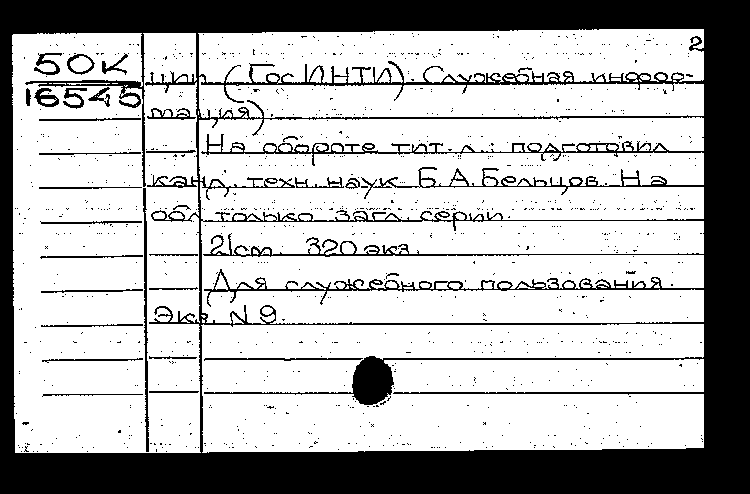 2
50К
16545
ции (ГосИНТИ). Служебная инфор-
мация).
На обороте тит. л.: подготовил
канд. техн. наук Б.А. Бельцов. На
обл. только загл. серии.
21cm. 320 экз.
Для служебного пользования.
Экз. N 9.